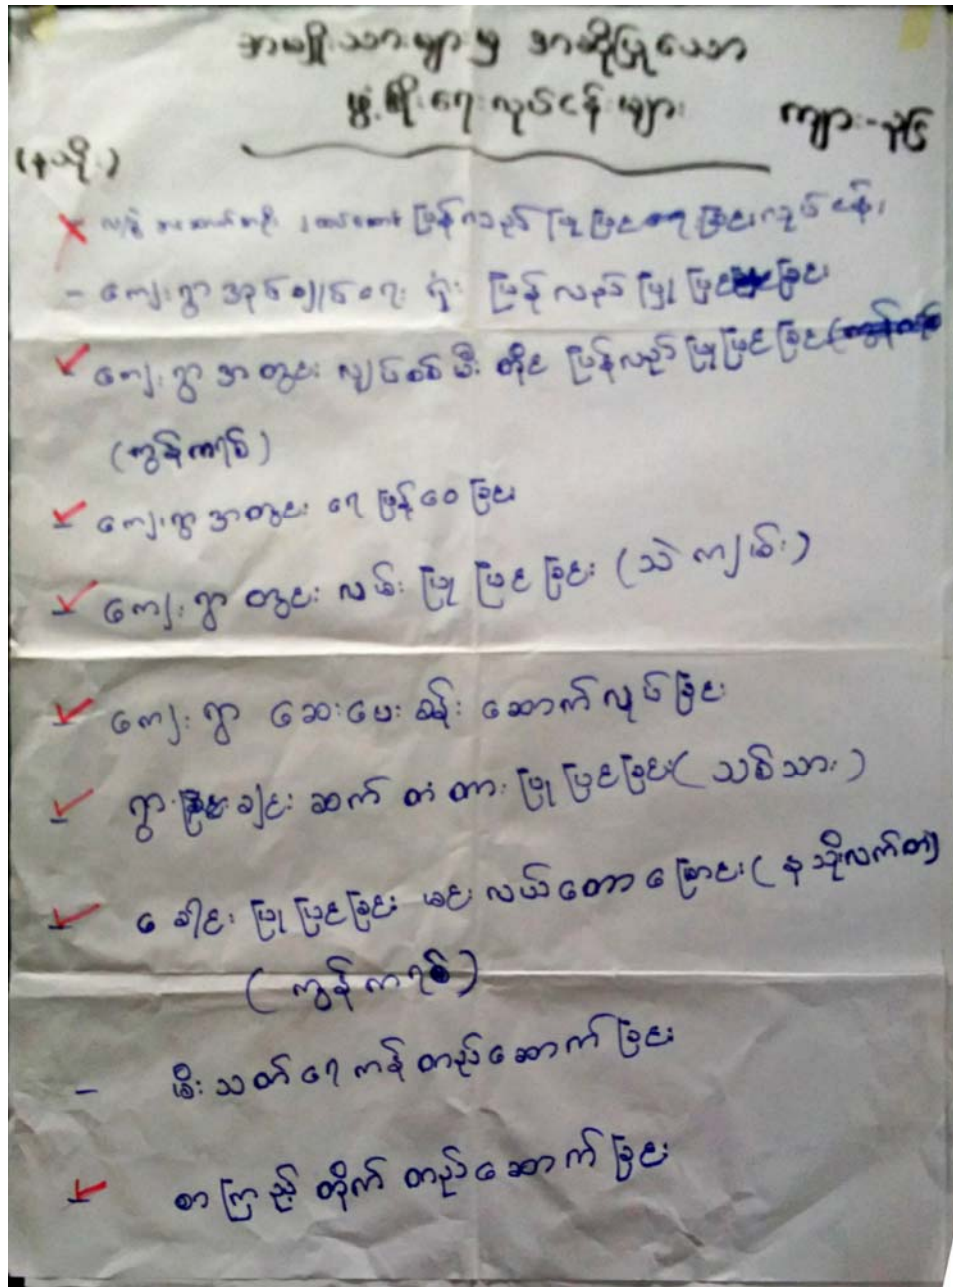 အမျိုးသားများမှ အဆိုပြုသော
ဖွံ့ဖြိုးရေးလုပ်ငန်းများ ကျား-
(နသိုး)
ပြန်လည် ပြုပြင် ခြင်းလုပ်ငန်း
- ကျေးရွာ အုပ်ချုပ်ရေး ရုံး ပြန်လည် ပြုပြင် ခြင်း
ကျေးရွာ အတွင်း လျှပ်စစ်မီး တိုင် ပြန်လည် ပြုပြင် ခြင်း
(ကွန်ကရစ်)
- ကျေးရွာ အတွင်း ရေ ဖြန့်ဝေ ခြင်း
- ကျေးရွာ တွင်း လမ်း ပြုပြင် ခြင်း (သဲ ကျမ်း)
- ကျေးရွာ ဆေးပေးခန်း ဆောက်လုပ်ခြင်း
- ရွာ ချင်း ဆက် တံတား ပြုပြင်ခြင်း (သစ်သား)
- ခေါင်း ပြုပြင်ခြင်း မင်းလယ်တောခြောင်း (နသိုးလက်တံ)
(ကွန်ကရစ်)
- မီးသတ်ရေကန် တည်ဆောက်ခြင်း
- စာကြည့်တိုက် တည်ဆောက်ခြင်း